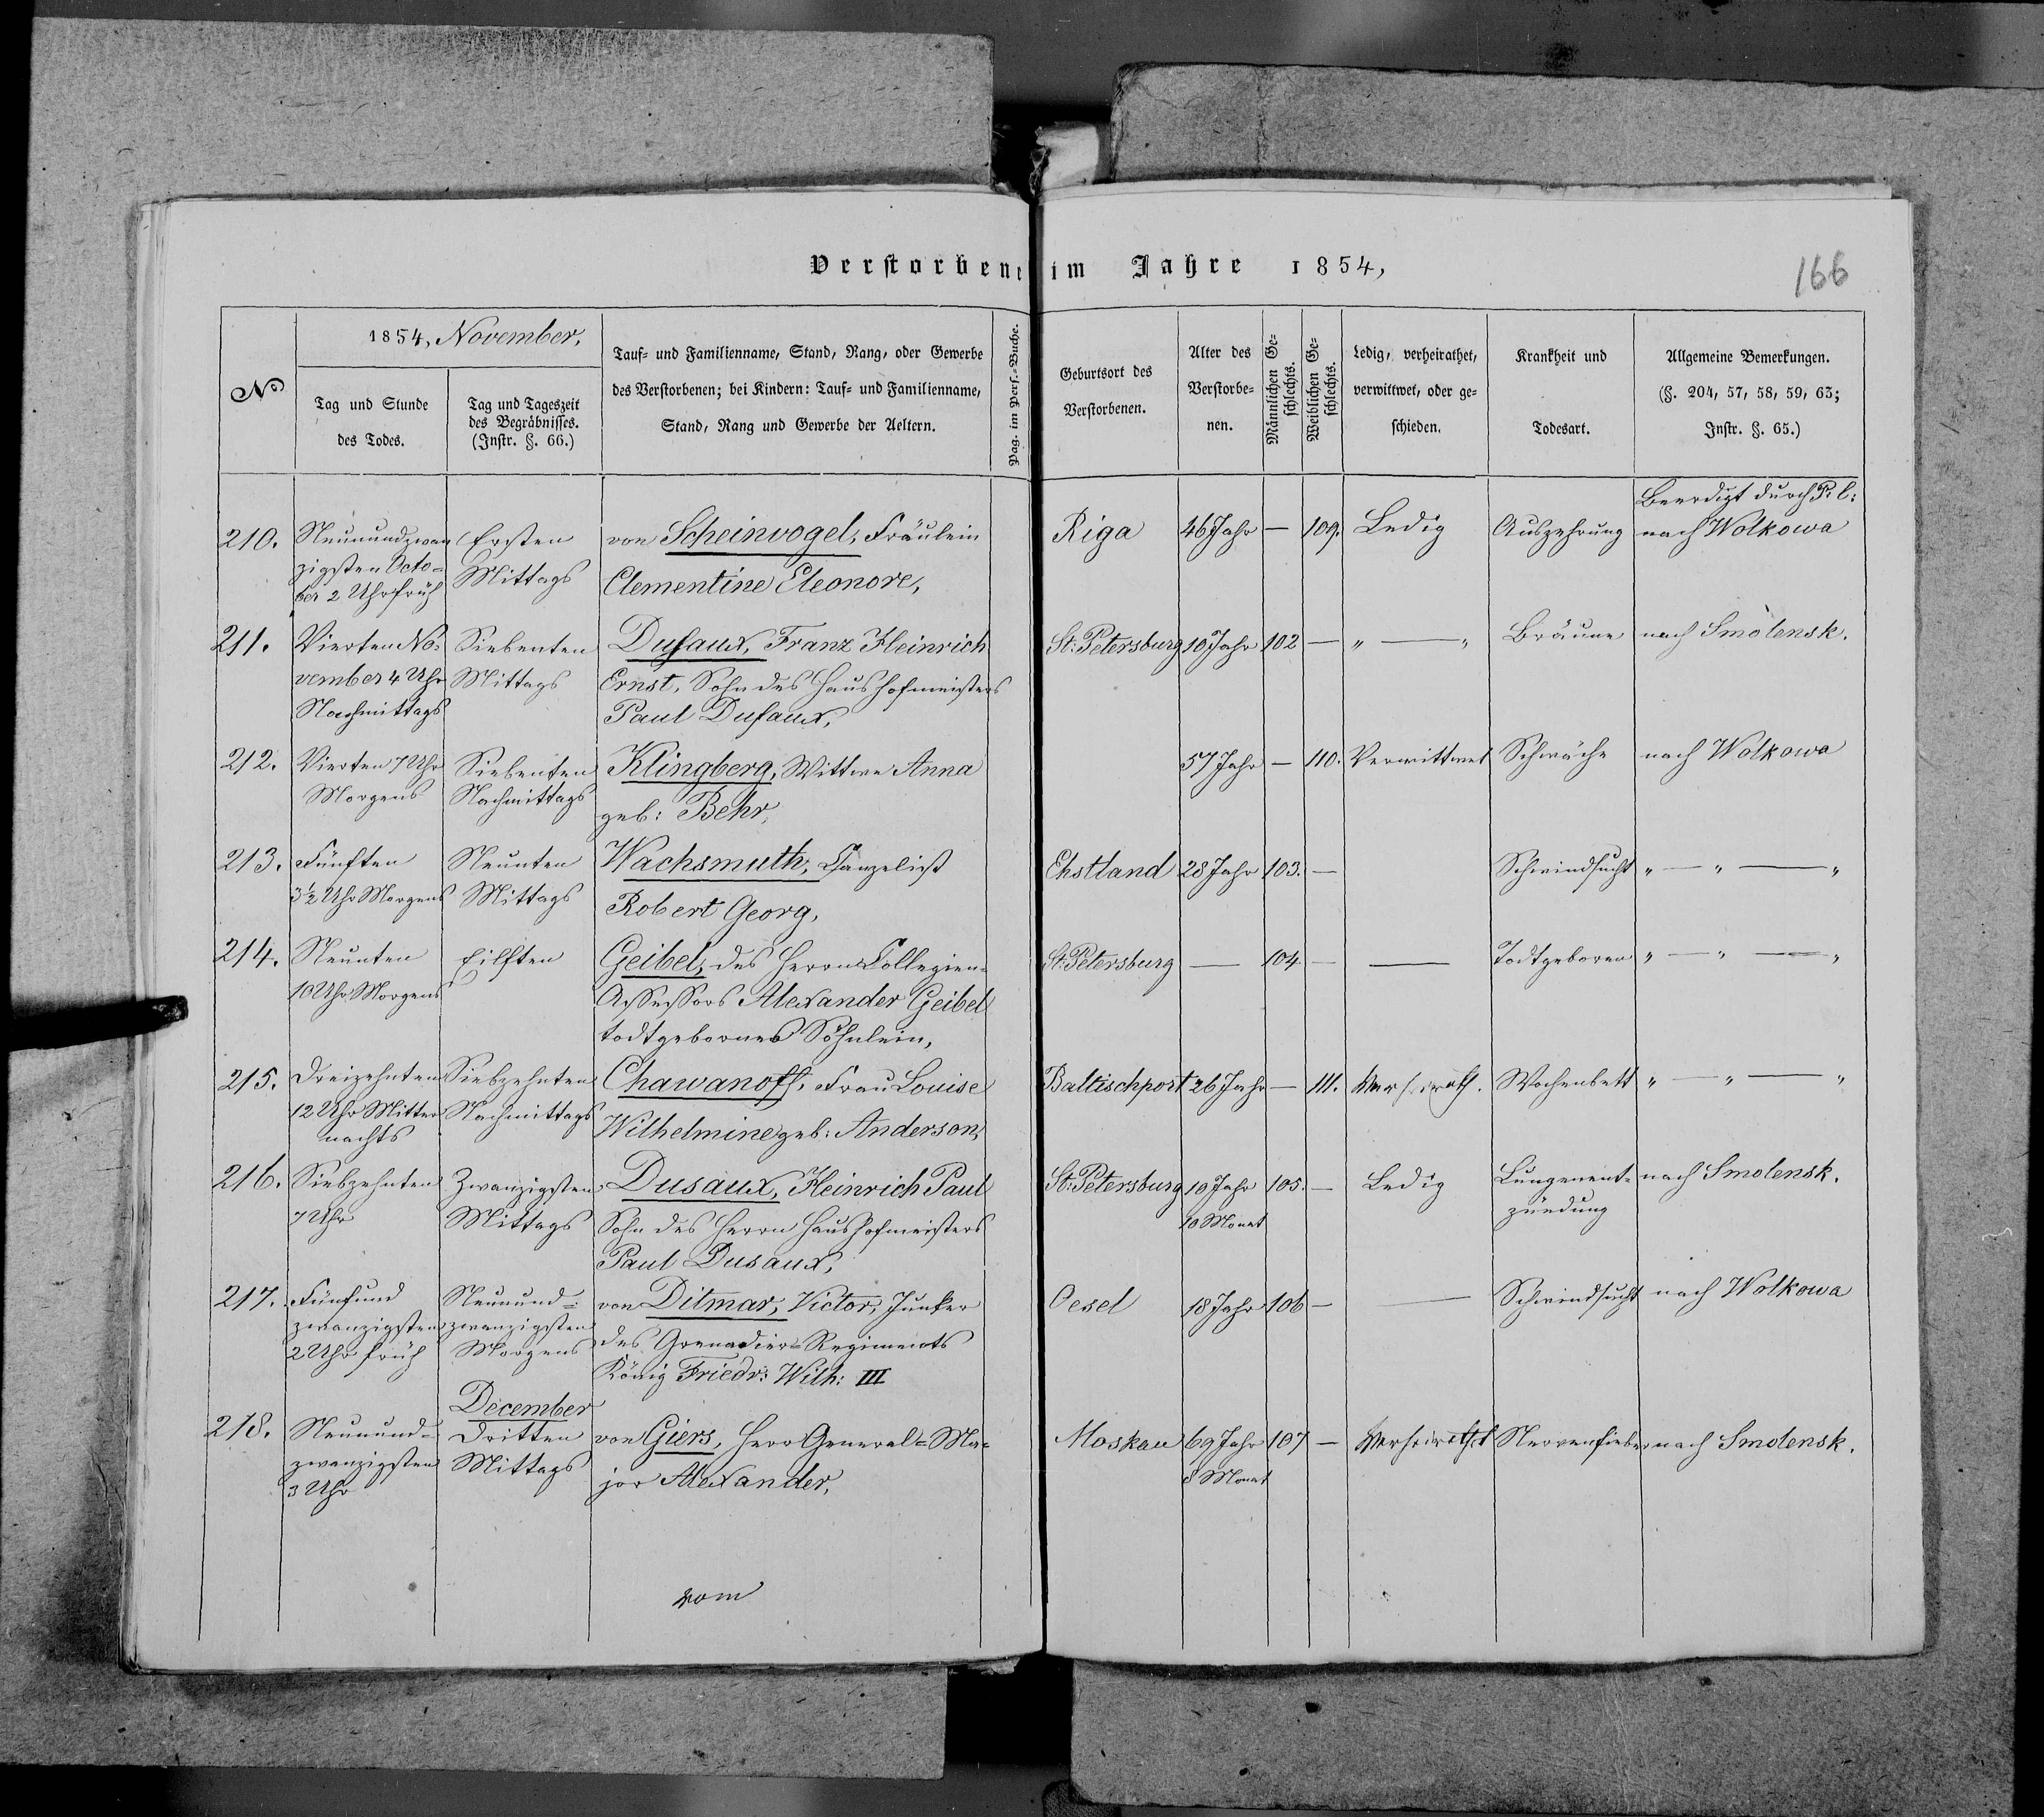 Verstorbene im Jahre 1854,
166
No
1854, November,
Tag und Stunde
des Todes.
Tag und Tageszeit
des Begräbnisses.
(Instr. §. 66.)
Tauf- und Familienname, Stand, Rang, oder Gewerbe
des Verstorbenen; bei Kindern: Tauf- und Familienname,
Stand, Rang und Gewerbe der Aeltern.
Pag. im Pers.-Buche.
Geburtsort des
Verstorbenen.
Alter des
Verstorbe-
nen.
Männlichen Ge-
schlechts.
Weiblichen Ge-
schlechts.
Ledig, verheirathet,
verwittwet, oder ge-
schieden.
Krankheit und
Todesart.
Allgemeine Bemerkungen.
(§. 204, 57, 58, 59, 63;
Instr. §. 65.)
210.
Neunundzwan
zigsten Octo-
ber 2 Uhr früh
Ersten
Mittags
von Scheinvogel, Fräulein
Clementine Eleonore,
Riga
46 Jahr
—
109.
Ledig
Auszehrung
Beerdigt durch P. l:
nach Wolkowa
211.
Vierten No-
vember 4 Uhr
Nachmittags
Siebenten
Mittags
Dusaux, Franz Heinrich
Ernst, Sohn des Haushofmeisters
Paul Dusaux,
St: Petersburg
10 Jahr
102
—
" — "
Bräune
nach Smolensk.
212.
Vierten 7 Uhr
Morgens
Siebenten
Nachmittags
Klingberg, Wittwe Anna
geb: Behr,
57 Jahr
—
110.
Verwittwet
Schwäche
nach Wolkowa
213.
Fünften
3½ Uhr Morgens
Neunten
Mittags
Wachsmuth, Canzelist
Robert Georg,
Ehstland
28 Jahr
103.
—
Schwindsucht
" — " — "
214.
Neunten
10 Uhr Morgens
Eilften
Geibel, des Herrn Collegien-
Assessors Alexander Geibel
todtgebornes Söhnlein,
St: Petersburg
—
104
—
—
Todtgeboren
" — " — "
215.
Dreizehnten
12 Uhr Mitter
nachts
Siebzehnten
Nachmittags
Chawanoff, Frau Louise
Wilhelmine geb: Anderson,
Baltischport
26 Jahr
—
111.
Verheirath.
Wochenbett
" — " — "
216.
Siebzehnten
7 Uhr
Zwanzigsten
Mittags
Dusaux, Heinrich Paul
Sohn des Herrn Haushofmeisters
Paul Dusaux,
St: Petersburg
10 Jahr
10 Monat
105.
—
Ledig
Lungenent-
zündung
nach Smolensk.
217.
Fünfund
zwanzigsten
2 Uhr früh
Neunund-
zwanzigsten
Morgens
von Ditmar, Victor, Junker
des Grenadier-Regiments
König Friedr: Wilh: III
Oesel
18 Jahr
106
—
—
Schwindsucht
nach Wolkowa
218.
Neunund-
zwanzigsten
3 Uhr
December
Dritten
Mittags
von Giers, Herr General-Ma-
jor Alexander,
Moskau
69 Jahr
8 Monat
107
—
Verheirathet
Nervenfieber
nach Smolensk.
vom